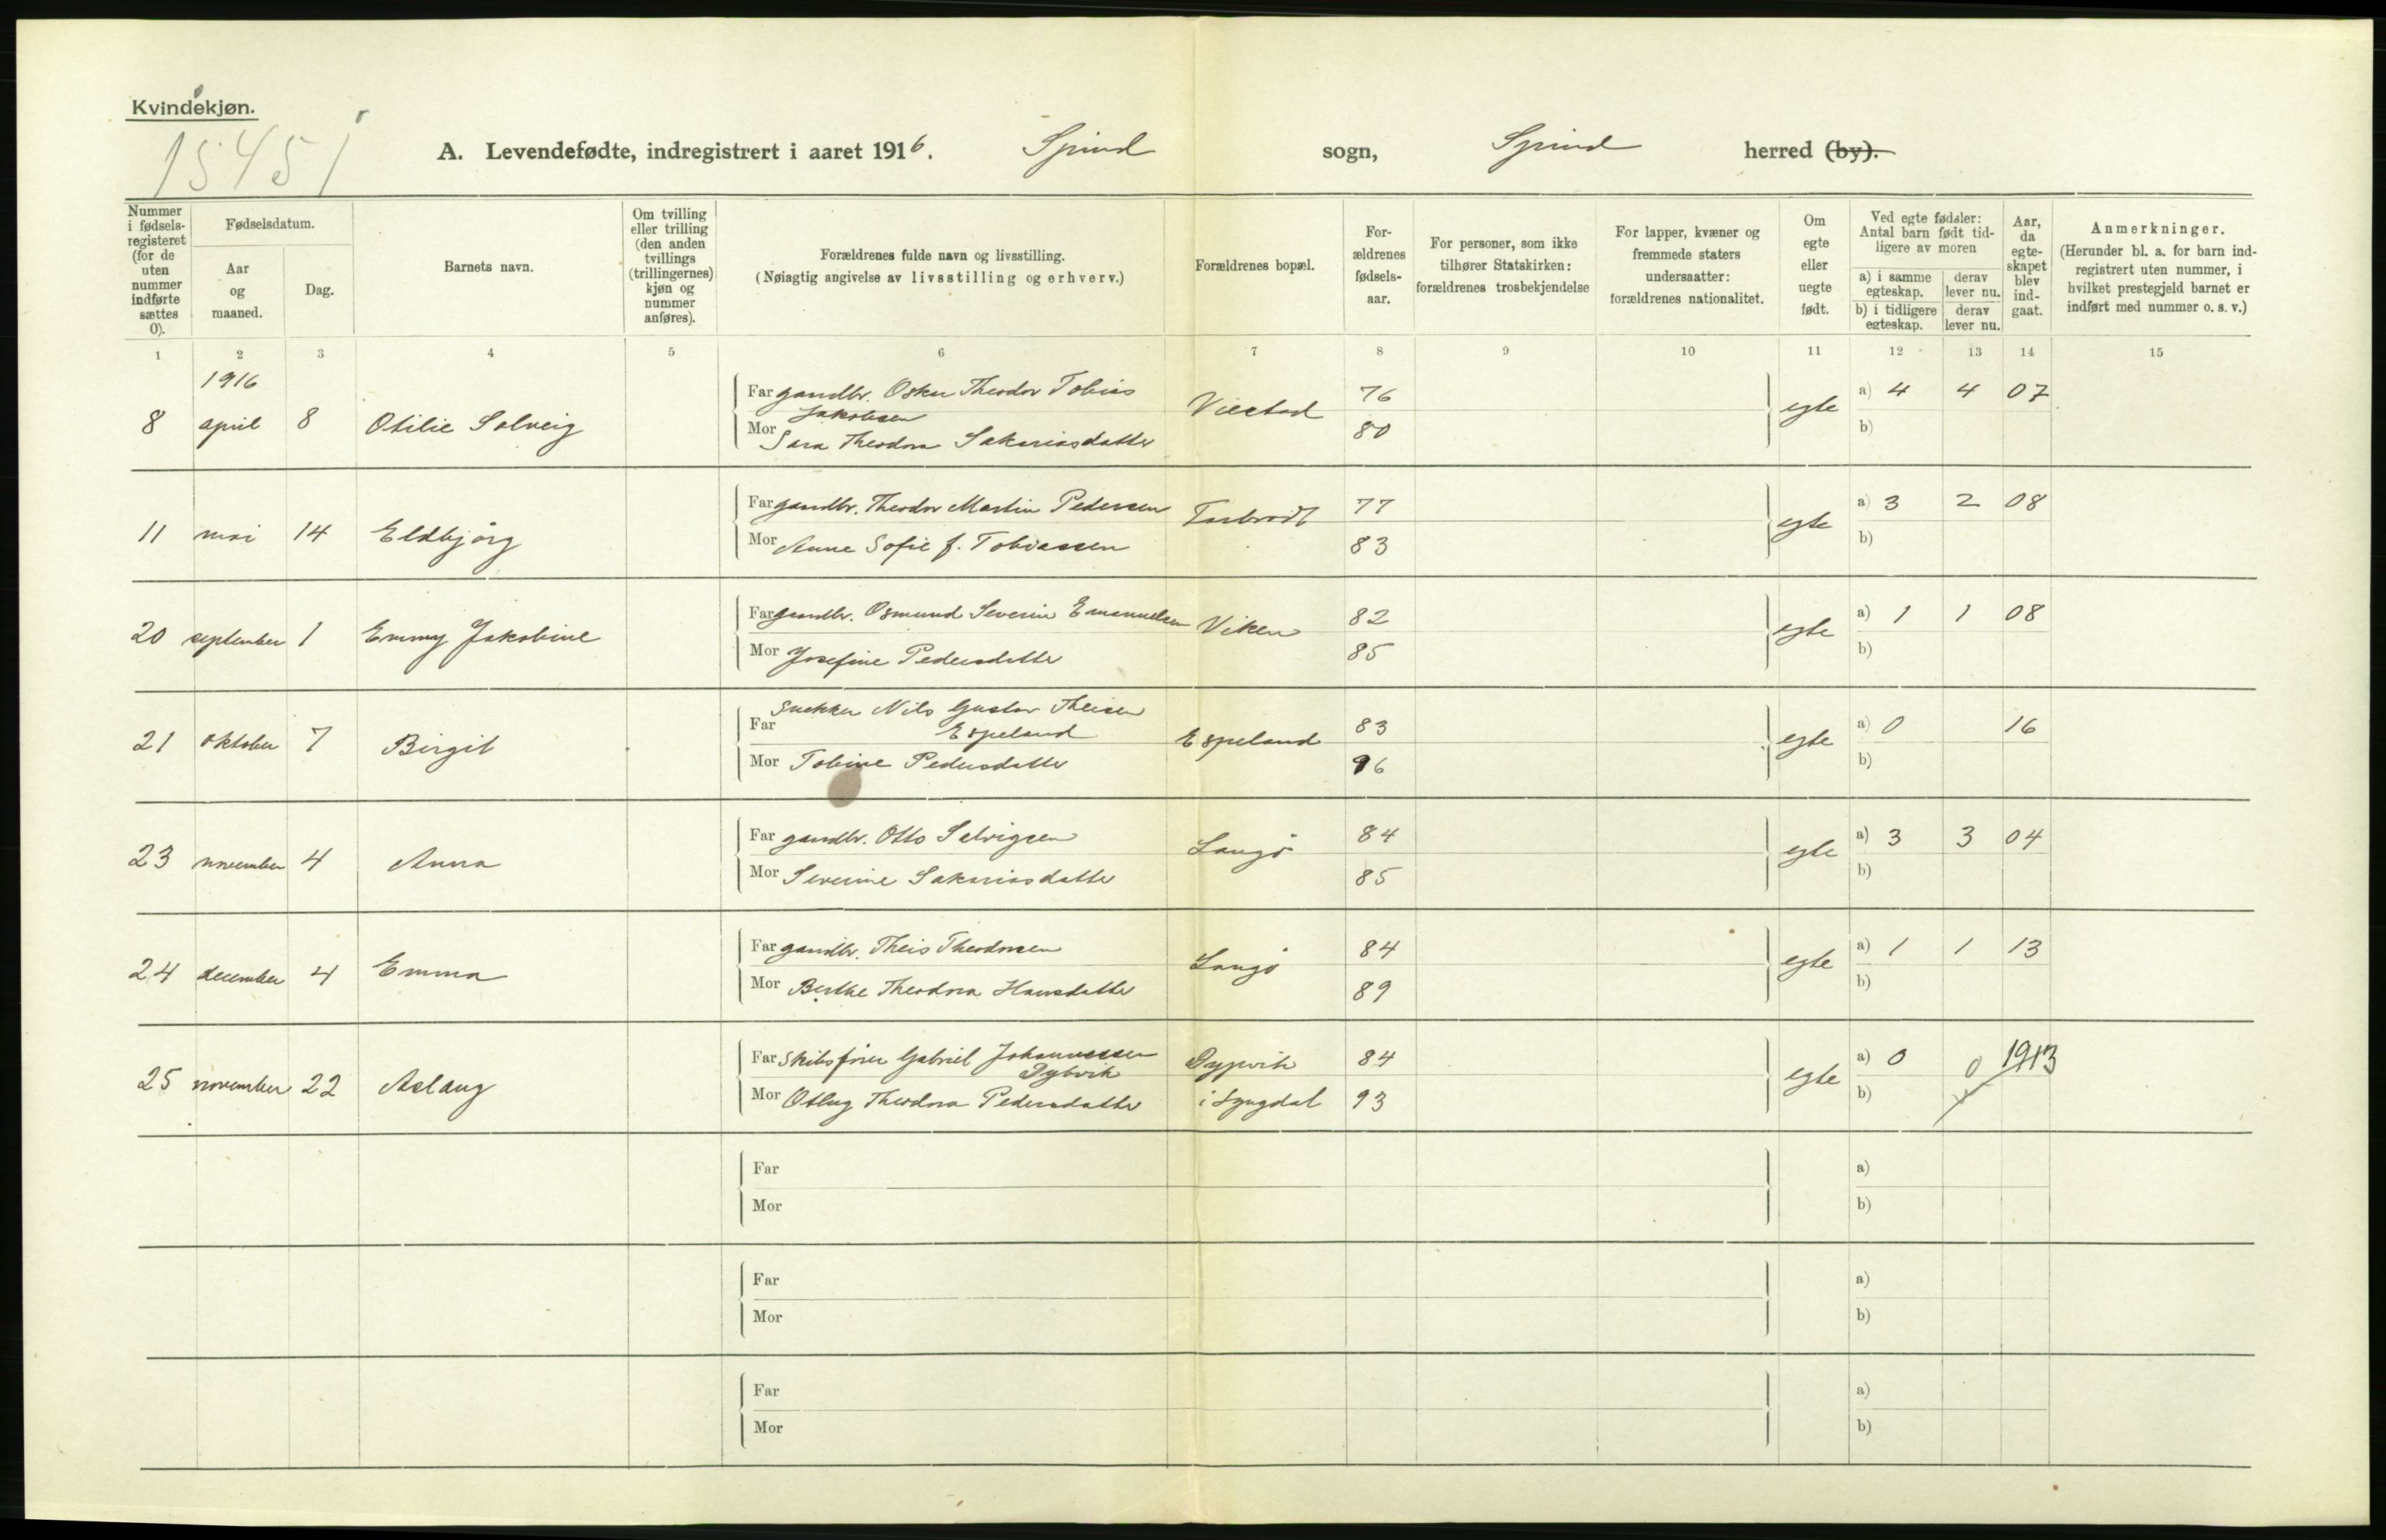 Kvindekjøn.
15451
A. Levendefødte, indregistrert i aaret 1916. Spind sogn, Spind herred (by).
Nummer i fødselsregisteret (for de uten nummer indførte sættes 0).
Fødselsdatum.
Aar og maaned.
Dag.
Barnets navn.
Om tvilling eller trilling (den anden tvillings (trillingernes) kjøn og nummer anføres).
Forældrenes fulde navn og livsstilling.
(Nøiagtig angivelse av livsstilling og erhverv.)
Forældrenes bopæl.
Forældrenes fødselsaar.
For personer, som ikke tilhører Statskirken: forældrenes trosbekjendelse
For lapper, kvæner og fremmede staters undersaatter: forældrenes nationalitet.
Om egte eller uegte født.
Ved egte fødsler: Antal barn født tidligere av moren
a) i samme egteskap. derav lever nu.
b) i tidligere egteskap. derav lever nu.
Aar, da egteskapet blev indgaat.
Anmerkninger.
(Herunder bl. a. for barn indregistrert uten nummer, i hvilket prestegjeld barnet er indført med nummer o. s. v.)
1 2 3 4 5 6 7 8 9 10 11 12 13 14 15
1916
8 april 8 Otilie Solveig
Far gaardbr. Oskar Theodor Tobias Jakobsen Viestad 76 egte a) 4 4 07
Mor Sara Theodora Sakariasdatter 80 b)
11 mai 14 Eldbjörg
Far gaardbr. Theodor Martin Pedersen 77 egte a) 3 2 08
Mor Anne Sofie f. Tobiassen 83 b)
20 september 1 Emmy Jakobine
Far gaardbr. Osmund Severin Emanuelsen Viken 82 egte a) 1 1 08
Mor Josefine Pedersdatter 85 b)
21 oktober 7 Birgit
Far Snekker Nils Gustav Theisen Espeland Espeland 83 egte a) 0 16
Mor Tobine Pedersdatter 96 b)
23 november 4 Anna
Far gaardbr. Otto Salvigsen Langö 84 egte a) 3 3 04
Mor Severine Sakariasdatter 85 b)
24 december 4 Emma
Far gaardbr. Theis Theodorsen Langö 84 egte a) 1 1 13
Mor Berthe Theodora Hansdatter 89 b)
25 november 22 Aslaug
Far Skibsförer Gabriel Johannessen Dybvik Dypvik 84 egte a) 0 0 1913
Mor Otlug Theodora Pedersdatter i Lyngdal 93 b)
Far a)
Mor b)
Far a)
Mor b)
Far a)
Mor b)